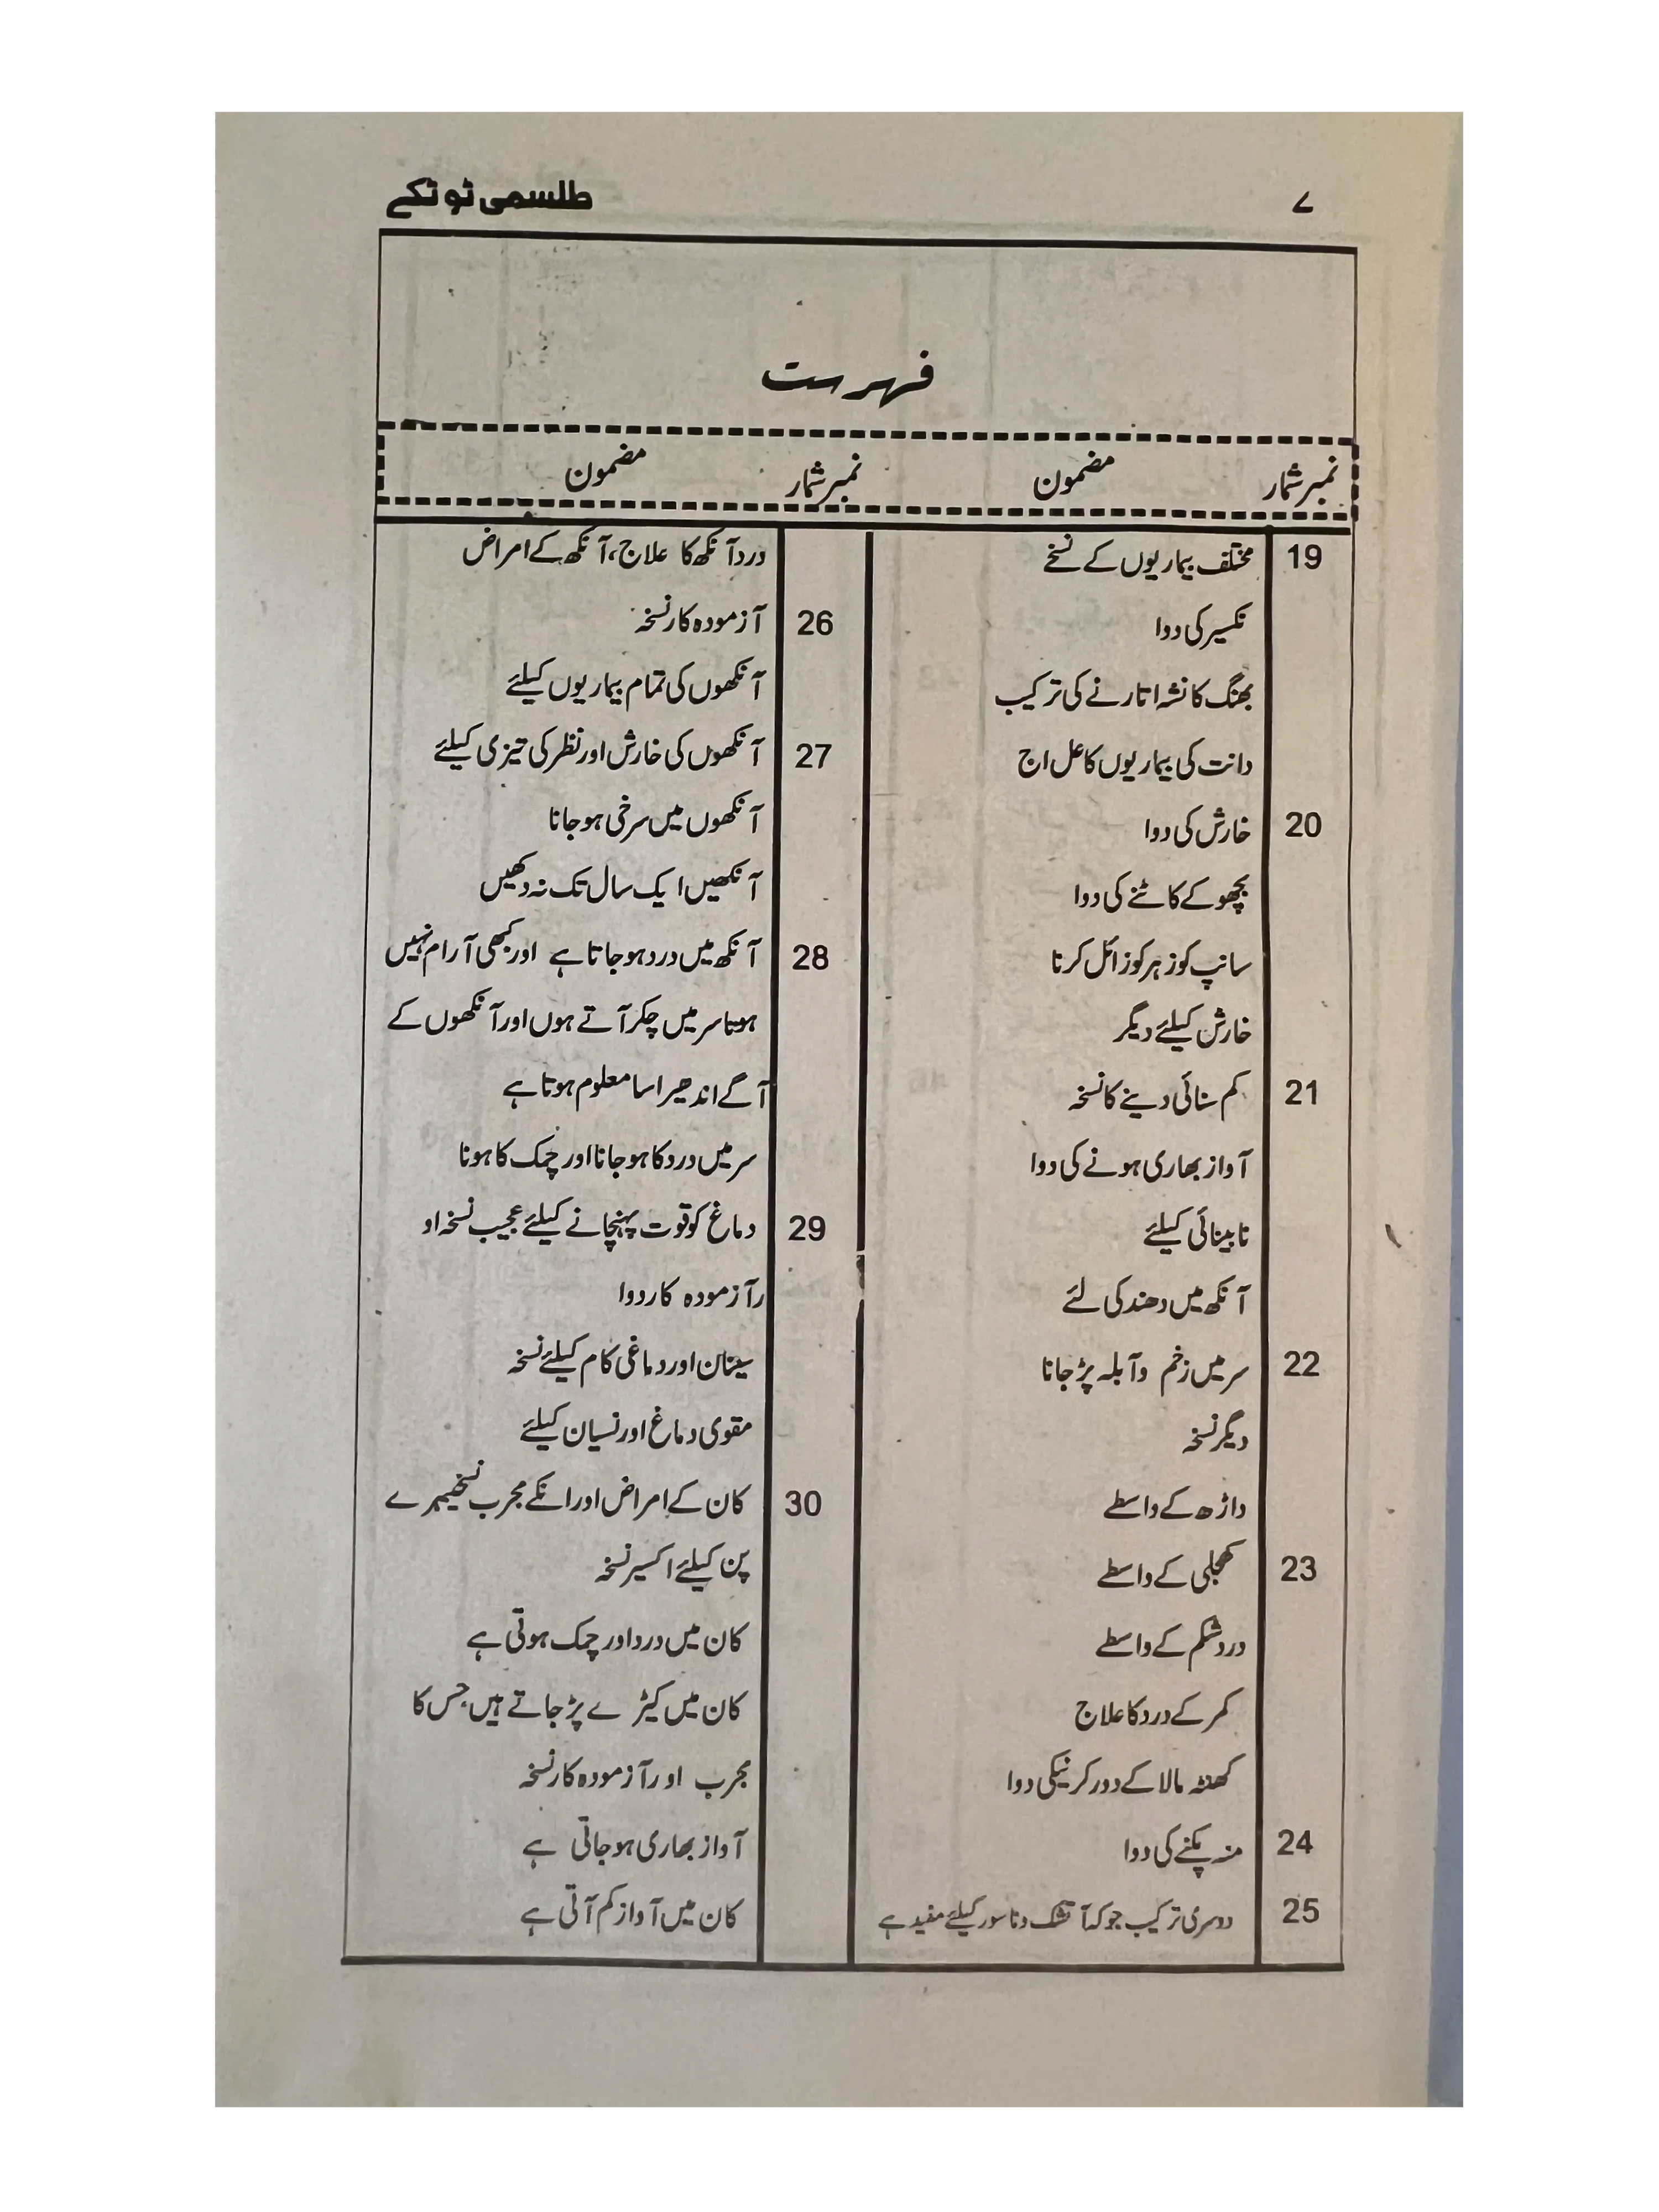 ۷
طلسمی ٹوٹکے
فہرست
نمبر شمار مضمون نمبر شمار مضمون
19 مختلف بیماریوں کے نسخے
نکسیر کی دوا
بھنگ کا نشہ اتارنے کی ترکیب
دانت کی بیماریوں کا عل اج
20 خارش کی دوا
بچھو کے کاٹنے کی دوا
سانپ کو زہر کو زائل کرنا
خارش کیلئے دیگر
21 کم سنائی دینے کا نسخہ
آواز بھاری ہونے کی دوا
نابینائی کیلئے
آنکھ میں دھند کی لئے
22 سر میں زخم وآبلہ پڑ جانا
دیگر نسخہ
داڑھ کے واسطے
23 کھجلی کے واسطے
درد شکم کے واسطے
کمر کے درد کا علاج
کھنٹہ مالا کے دور کرنیکی دوا
24 منہ پکنے کی دوا
25 دوسری ترکیب جو کہ آتشک و ناسور کیلئے مفید ہے
درد آنکھ کا علاج، آنکھ کے امراض
26 آزمودہ کار نسخہ
آنکھوں کی تمام بیماریوں کیلئے
27 آنکھوں کی خارش اور نظر کی تیزی کیلئے
آنکھوں میں سرخی ہو جانا
آنکھیں ایک سال تک نہ دکھیں
28 آنکھ میں درد ہو جاتا ہے اور کبھی آرام نہیں
ہوتا سر میں چکر آتے ہوں اور آنکھوں کے
آگے اندھیرا سا معلوم ہوتا ہے
سر میں درد کا ہو جانا اور چمک کا ہونا
29 دماغ کو قوت پہنچانے کیلئے عجیب نسخہ او
ر آزمودہ کار دوا
سینان اور دماغی کام کیلئے نسخہ
مقوی دماغ اور نسیان کیلئے
30 کان کے امراض اور انکے مجرب نسخیبہرے
پن کیلئے اکسیر نسخہ
کان میں درد اور چمک ہوتی ہے
کان میں کیڑے پڑ جاتے ہیں جس کا
مجرب اور آزمودہ کار نسخہ
آواز بھاری ہو جاتی ہے
کان میں آواز کم آتی ہے